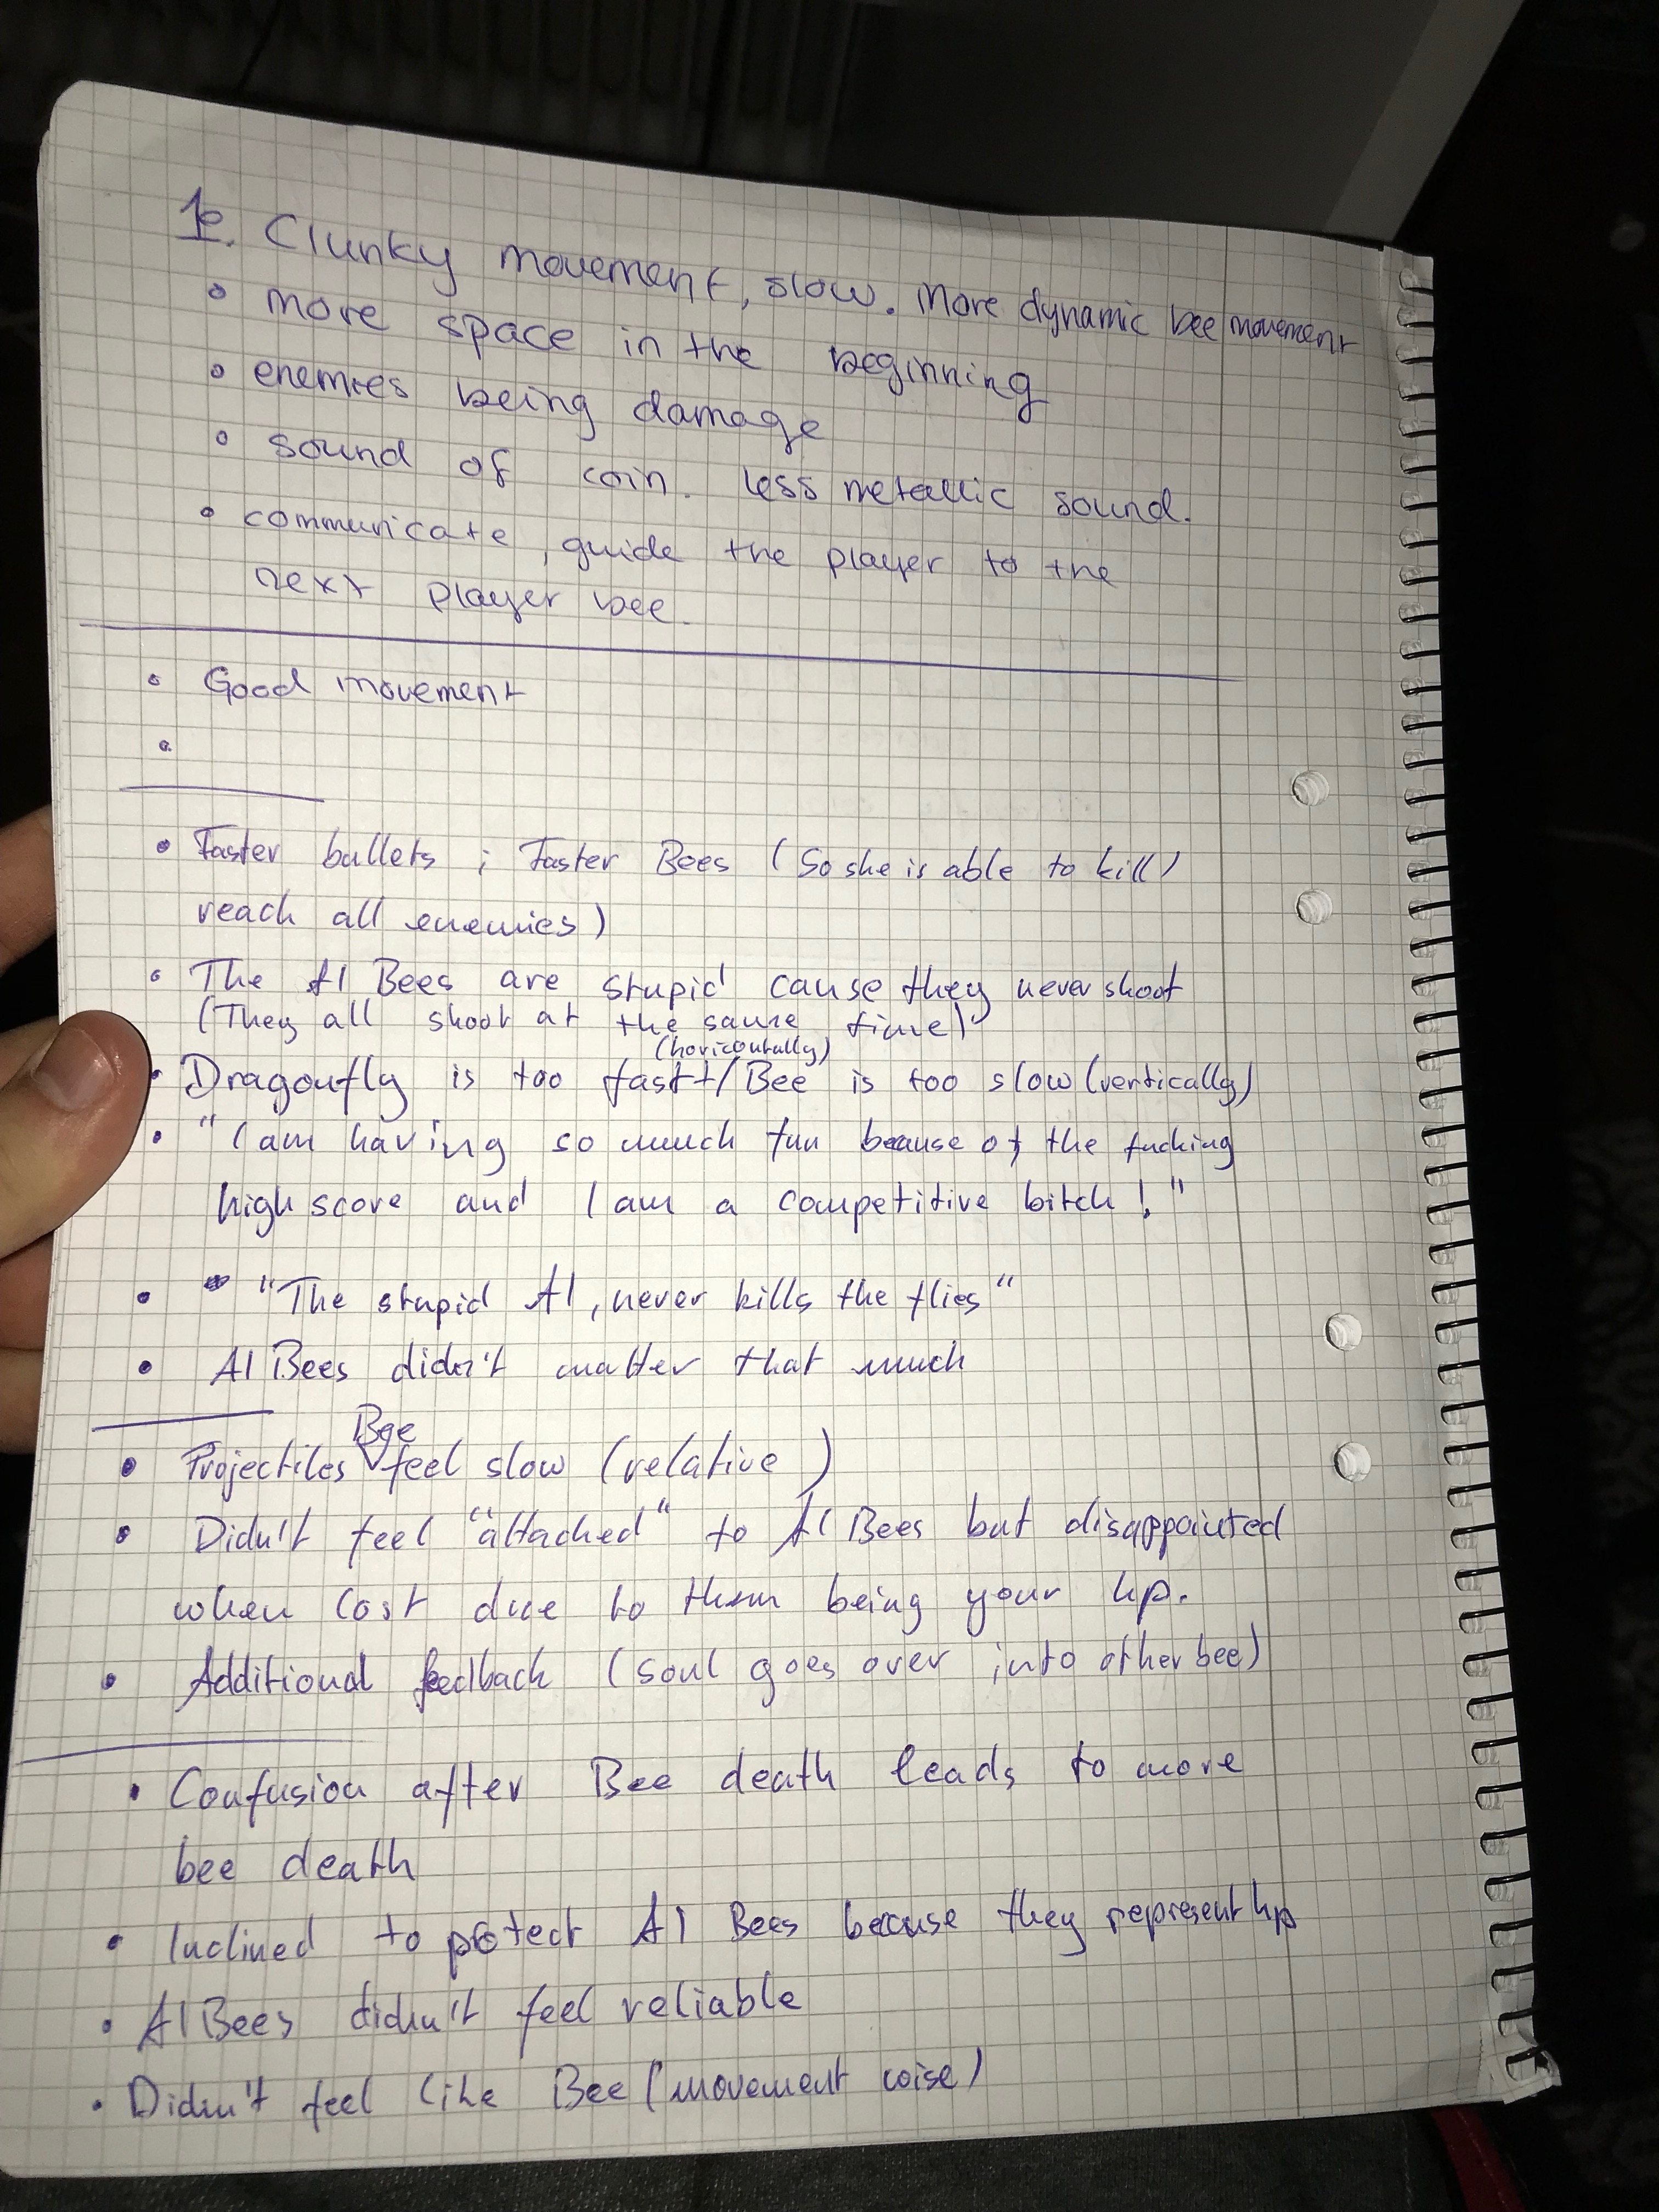 1. Clunky movement, slow. More dynamic bee movement
• more space in the beginning
• enemies being damage
• sound of coin. Less metallic sound.
• communicate, guide the player to the
next player bee.
• Good movement
•
• Faster bullets ; Faster Bees (So she is able to kill/
reach all enemies)
• The AI Bees are stupid cause they never shoot
(They all shoot at the same time)
(horicontally)
• Dragonfly is too fast+/Bee is too slow (vertically)
• "I am having so much fun because of the fucking
high score and I am a competitive bitch!"
• "The stupid AI, never kills the flies"
• AI Bees didn't matter that much
Bee
• Projectiles feel slow (relative )
• Didn't feel "attached" to AI Bees but disappointed
when lost due to them being your hp.
• Additional feedback (soul goes over into other bee)
• Confusion after Bee death leads to more
bee death
• Inclined to protect AI Bees because they represent hp
• AI Bees didn't feel reliable
• Didn't feel like Bee (movement wise)